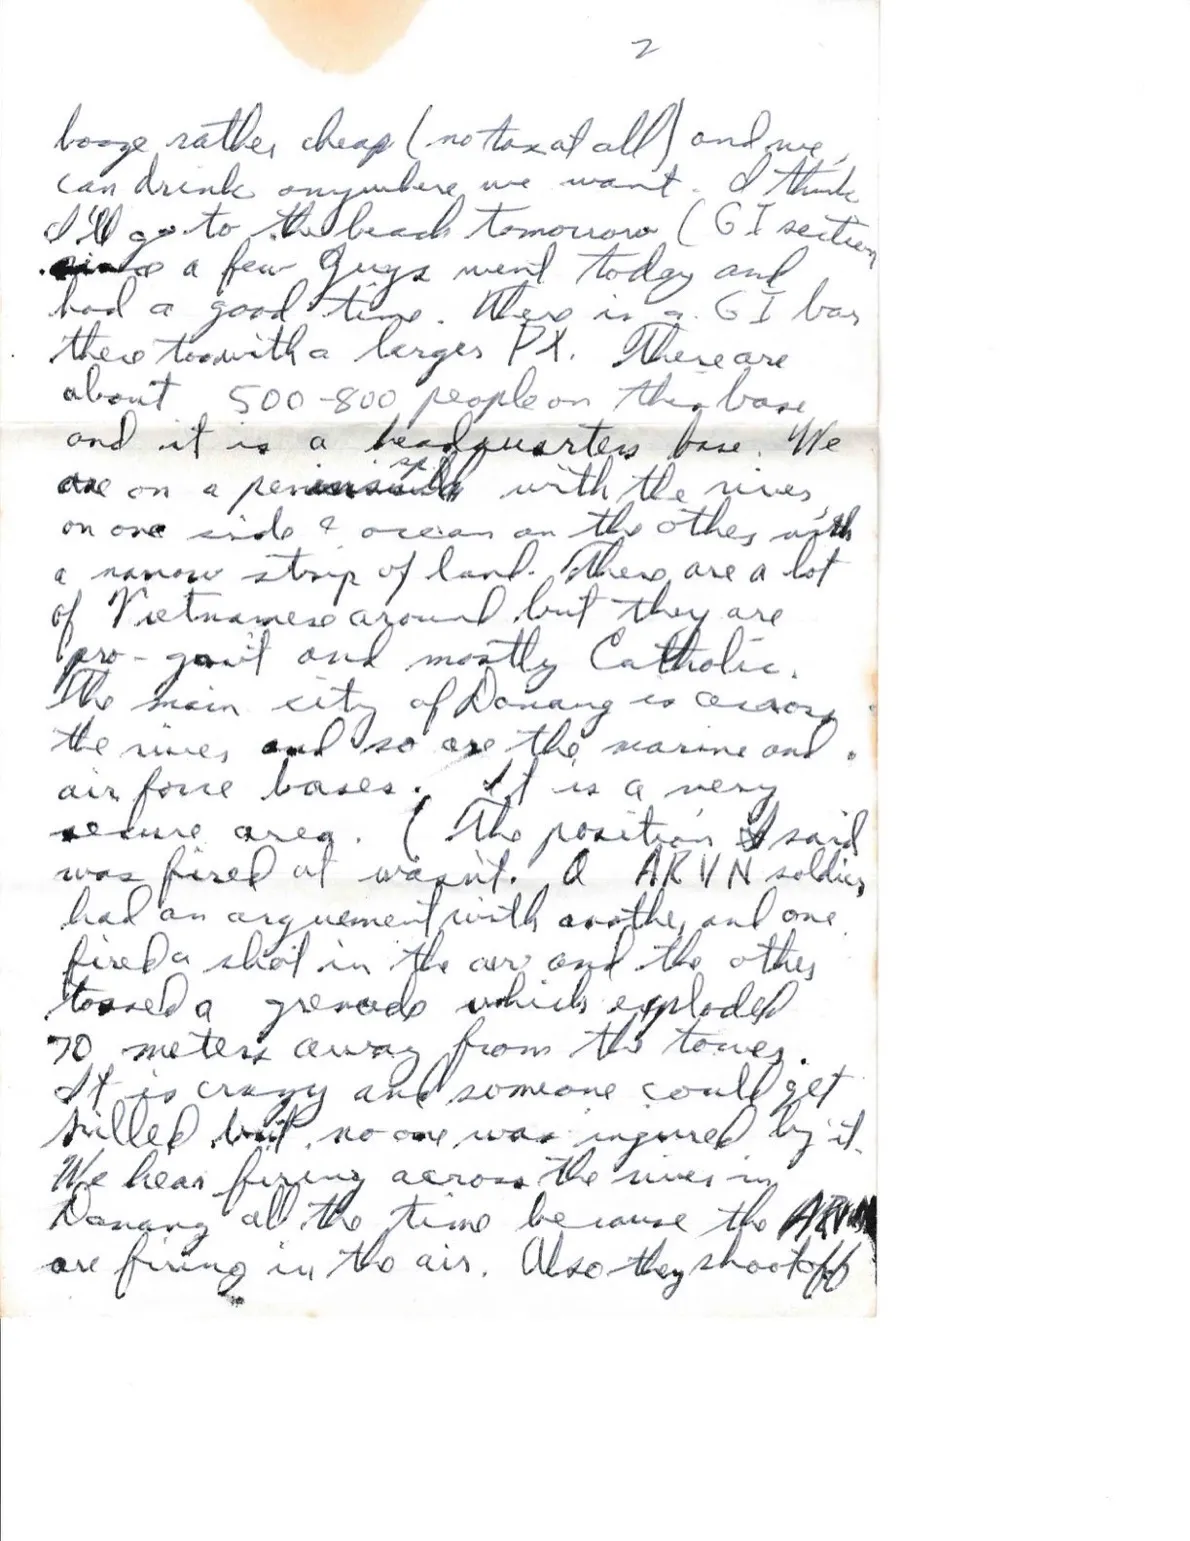 2
booze rather cheap (no tax at all) and we
can drink anywhere we want. I think
I'll go to the beach tomorrow (GI section
since a few guys went today and
had a good time. There is a GI bar
there too with a larger PX. There are
about 500-800 people on this base
and it is a headquarters base. We
are on a peninsula sp. with the river
on one side & ocean on the other with
a narrow strip of land. There are a lot
of Vietnamese around but they are
pro-gov't and mostly Catholic.
The main city of Danang is across
the river and so are the marine and
air force bases. It is a very
secure area. (The position I said
was fired at wasn't. A ARVN soldier
had an arguement with another and one
fired a shot in the air and the other
tossed a grenade which exploded
70 meters away from the tower.
It is crazy and someone could get
killed but no one was injured by it.
We hear firing across the river in
Danang all the time because the ARVN
are firing in the air. Also they shoot off